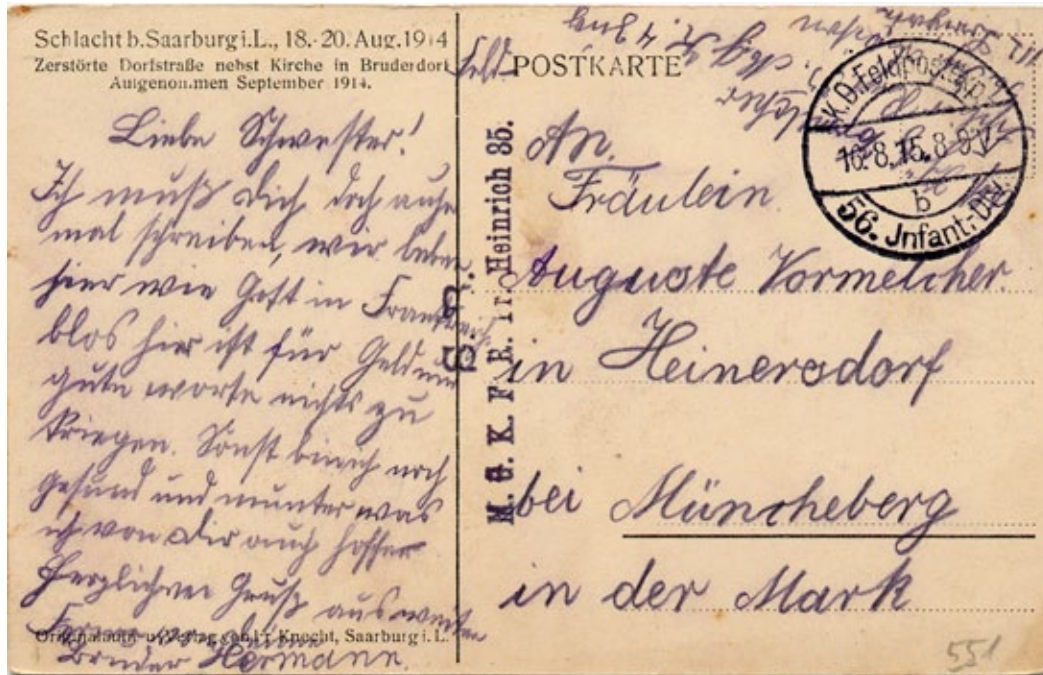 Schlacht b. Saarburg i. L., 18.-20. Aug. 1914
Zerstörte Dorfstraße nebst Kirche in Bruderdorf
Aufgenommen September 1914.
Liebe Schwester!
Ich muß Dich doch auch
mal schreiben, wir leben
hier wie Gott in Frankreich,
blos hier ist für Geld und
gute worte nichts zu
kriegen. Sonst bin ich noch
gesund und munter was
ich von Dir auch hoffe
Herzlichen Gruß aus weiter
Ferne von Deinem
Bruder Hermann.
Originalaufn. u. Verlag von Fr. Knecht, Saarburg i. L.
S. B.
M. G. K. F. R. Heinrich 35.
Feld-
POSTKARTE
An.
Fräulein
Auguste Vormelcher.
in Heinersdorf
bei Müncheberg
in der Mark
K. D. Feldpostexp.
16.8.15. 8-9V
b
56. Jnfant.-Div.
551